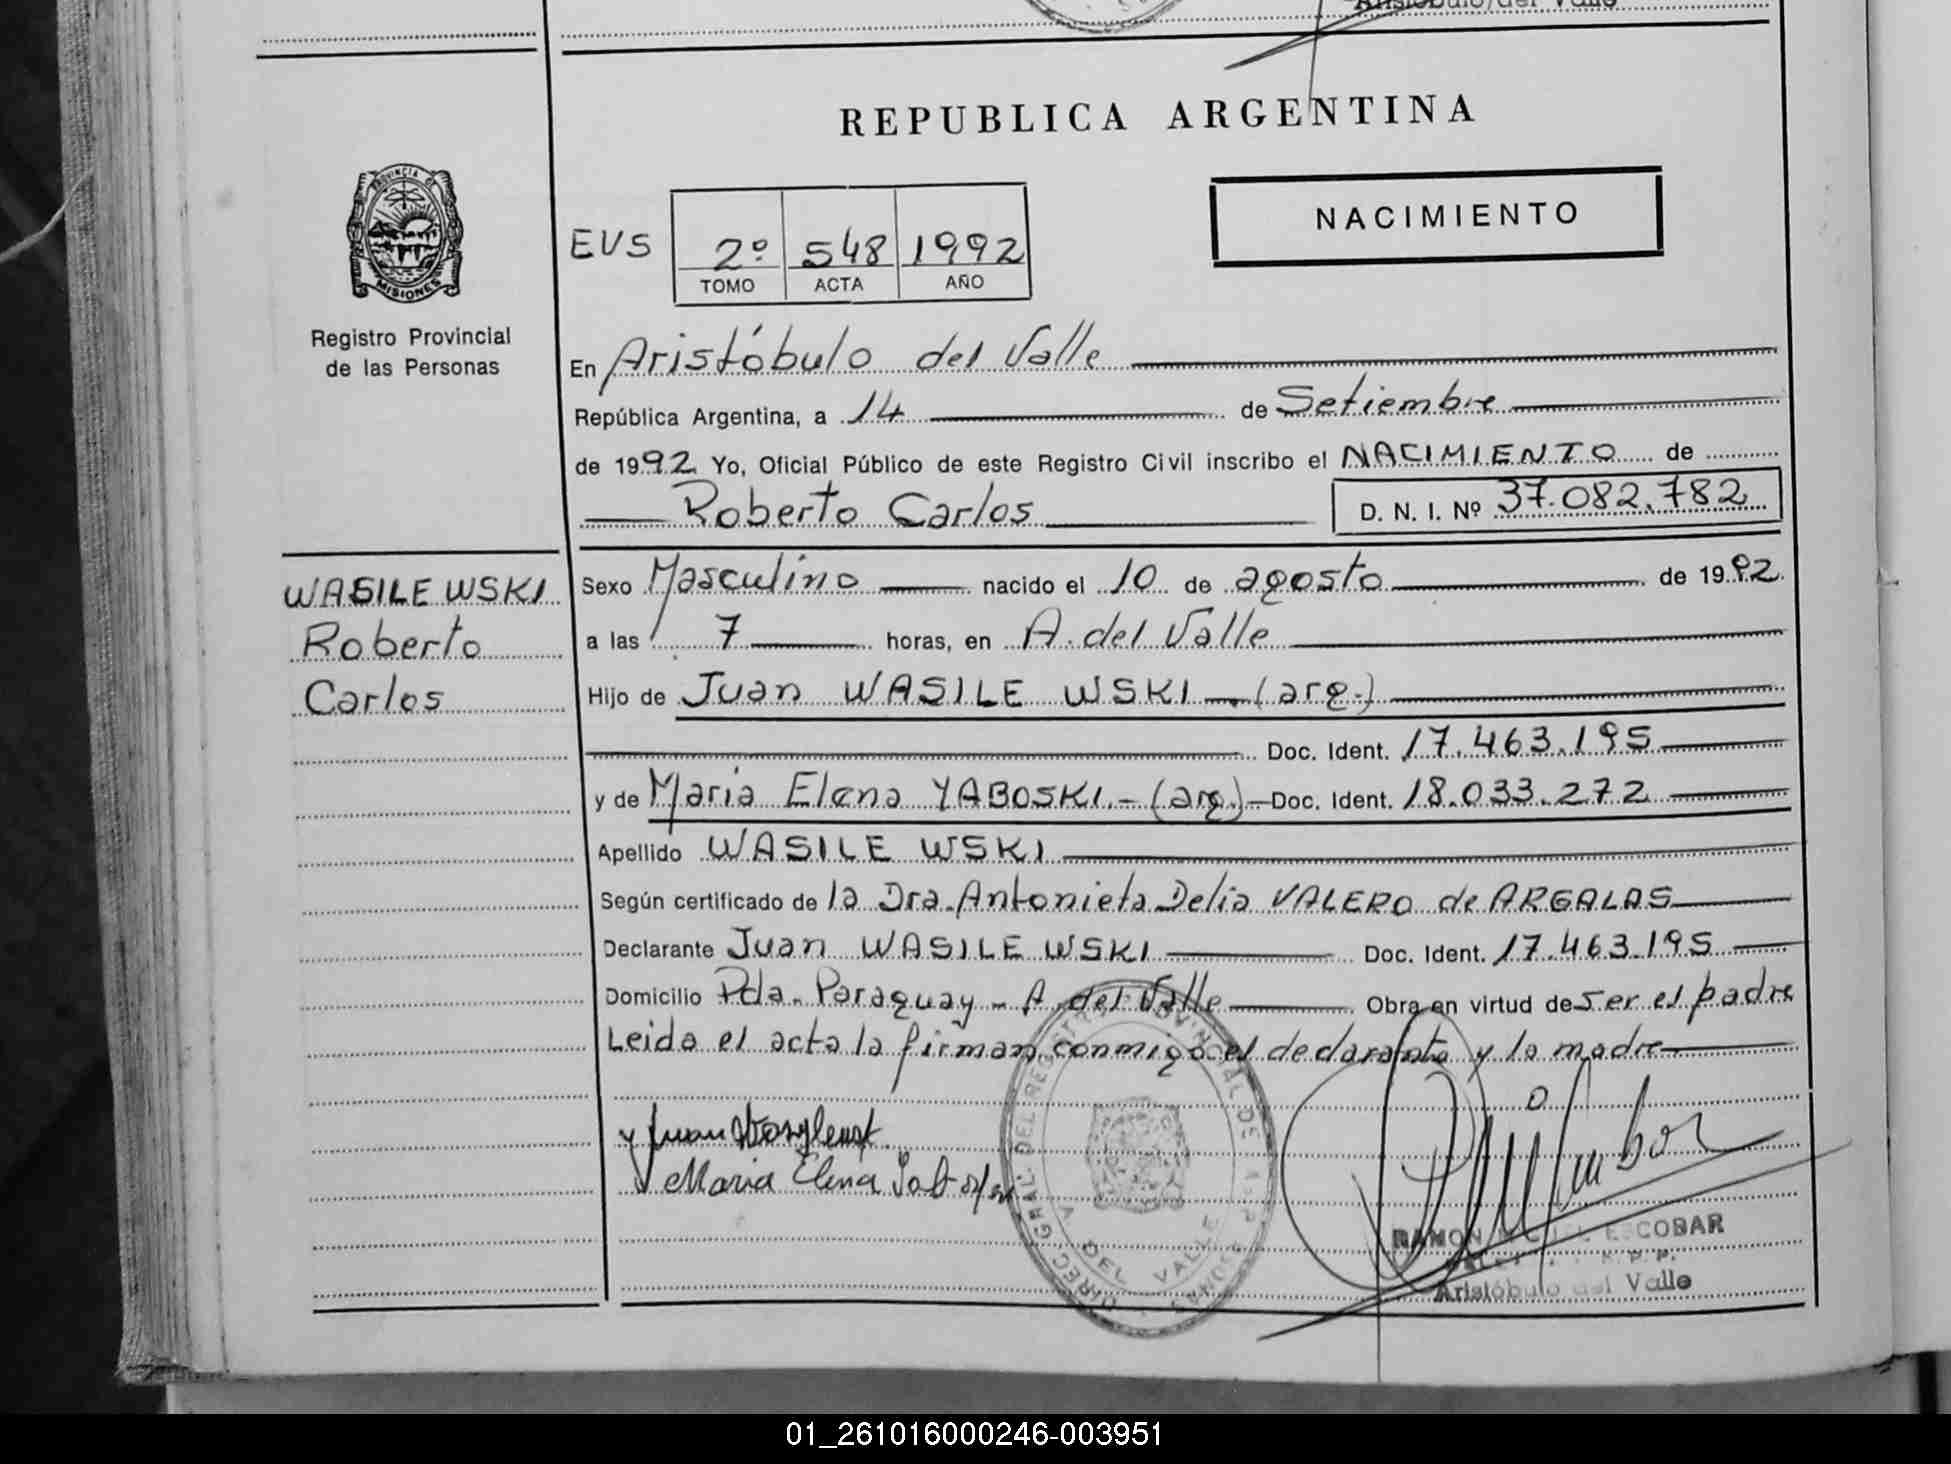 Aristóbulo del Valle
REPUBLICA ARGENTINA
PROVINCIA DE
MISIONES
Registro Provincial
de las Personas
EVS 2º 548 1992
TOMO ACTA AÑO
NACIMIENTO
En Aristóbulo del Valle
República Argentina, a 14 de Setiembre
de 1992 Yo, Oficial Público de este Registro Civil inscribo el NACIMIENTO de
Roberto Carlos D. N. I. Nº 37.082.782
WASILEWSKI
Roberto
Carlos
Sexo Masculino nacido el 10 de agosto de 1992
a las 7 horas, en A. del Valle
Hijo de Juan WASILEWSKI - (arg.)
Doc. Ident. 17.463.195
y de Maria Elena YABOSKI.- (arg.)- Doc. Ident. 18.033.272
Apellido WASILEWSKI
Según certificado de la Dra. Antonieta Delia VALERO de ARGALAS
Declarante Juan WASILEWSKI Doc. Ident. 17.463.195
Domicilio Pda. Paraguay - A. del Valle Obra en virtud de ser el padre
Leida el acta la firman conmigo el declarante y la madre
Juan
Maria Elena
DIREC. GRAL. DEL REGISTRO PROVINCIAL DE
DEL VALLE
RAMON ESCOBAR
Aristóbulo del Valle
01_261016000246-003951